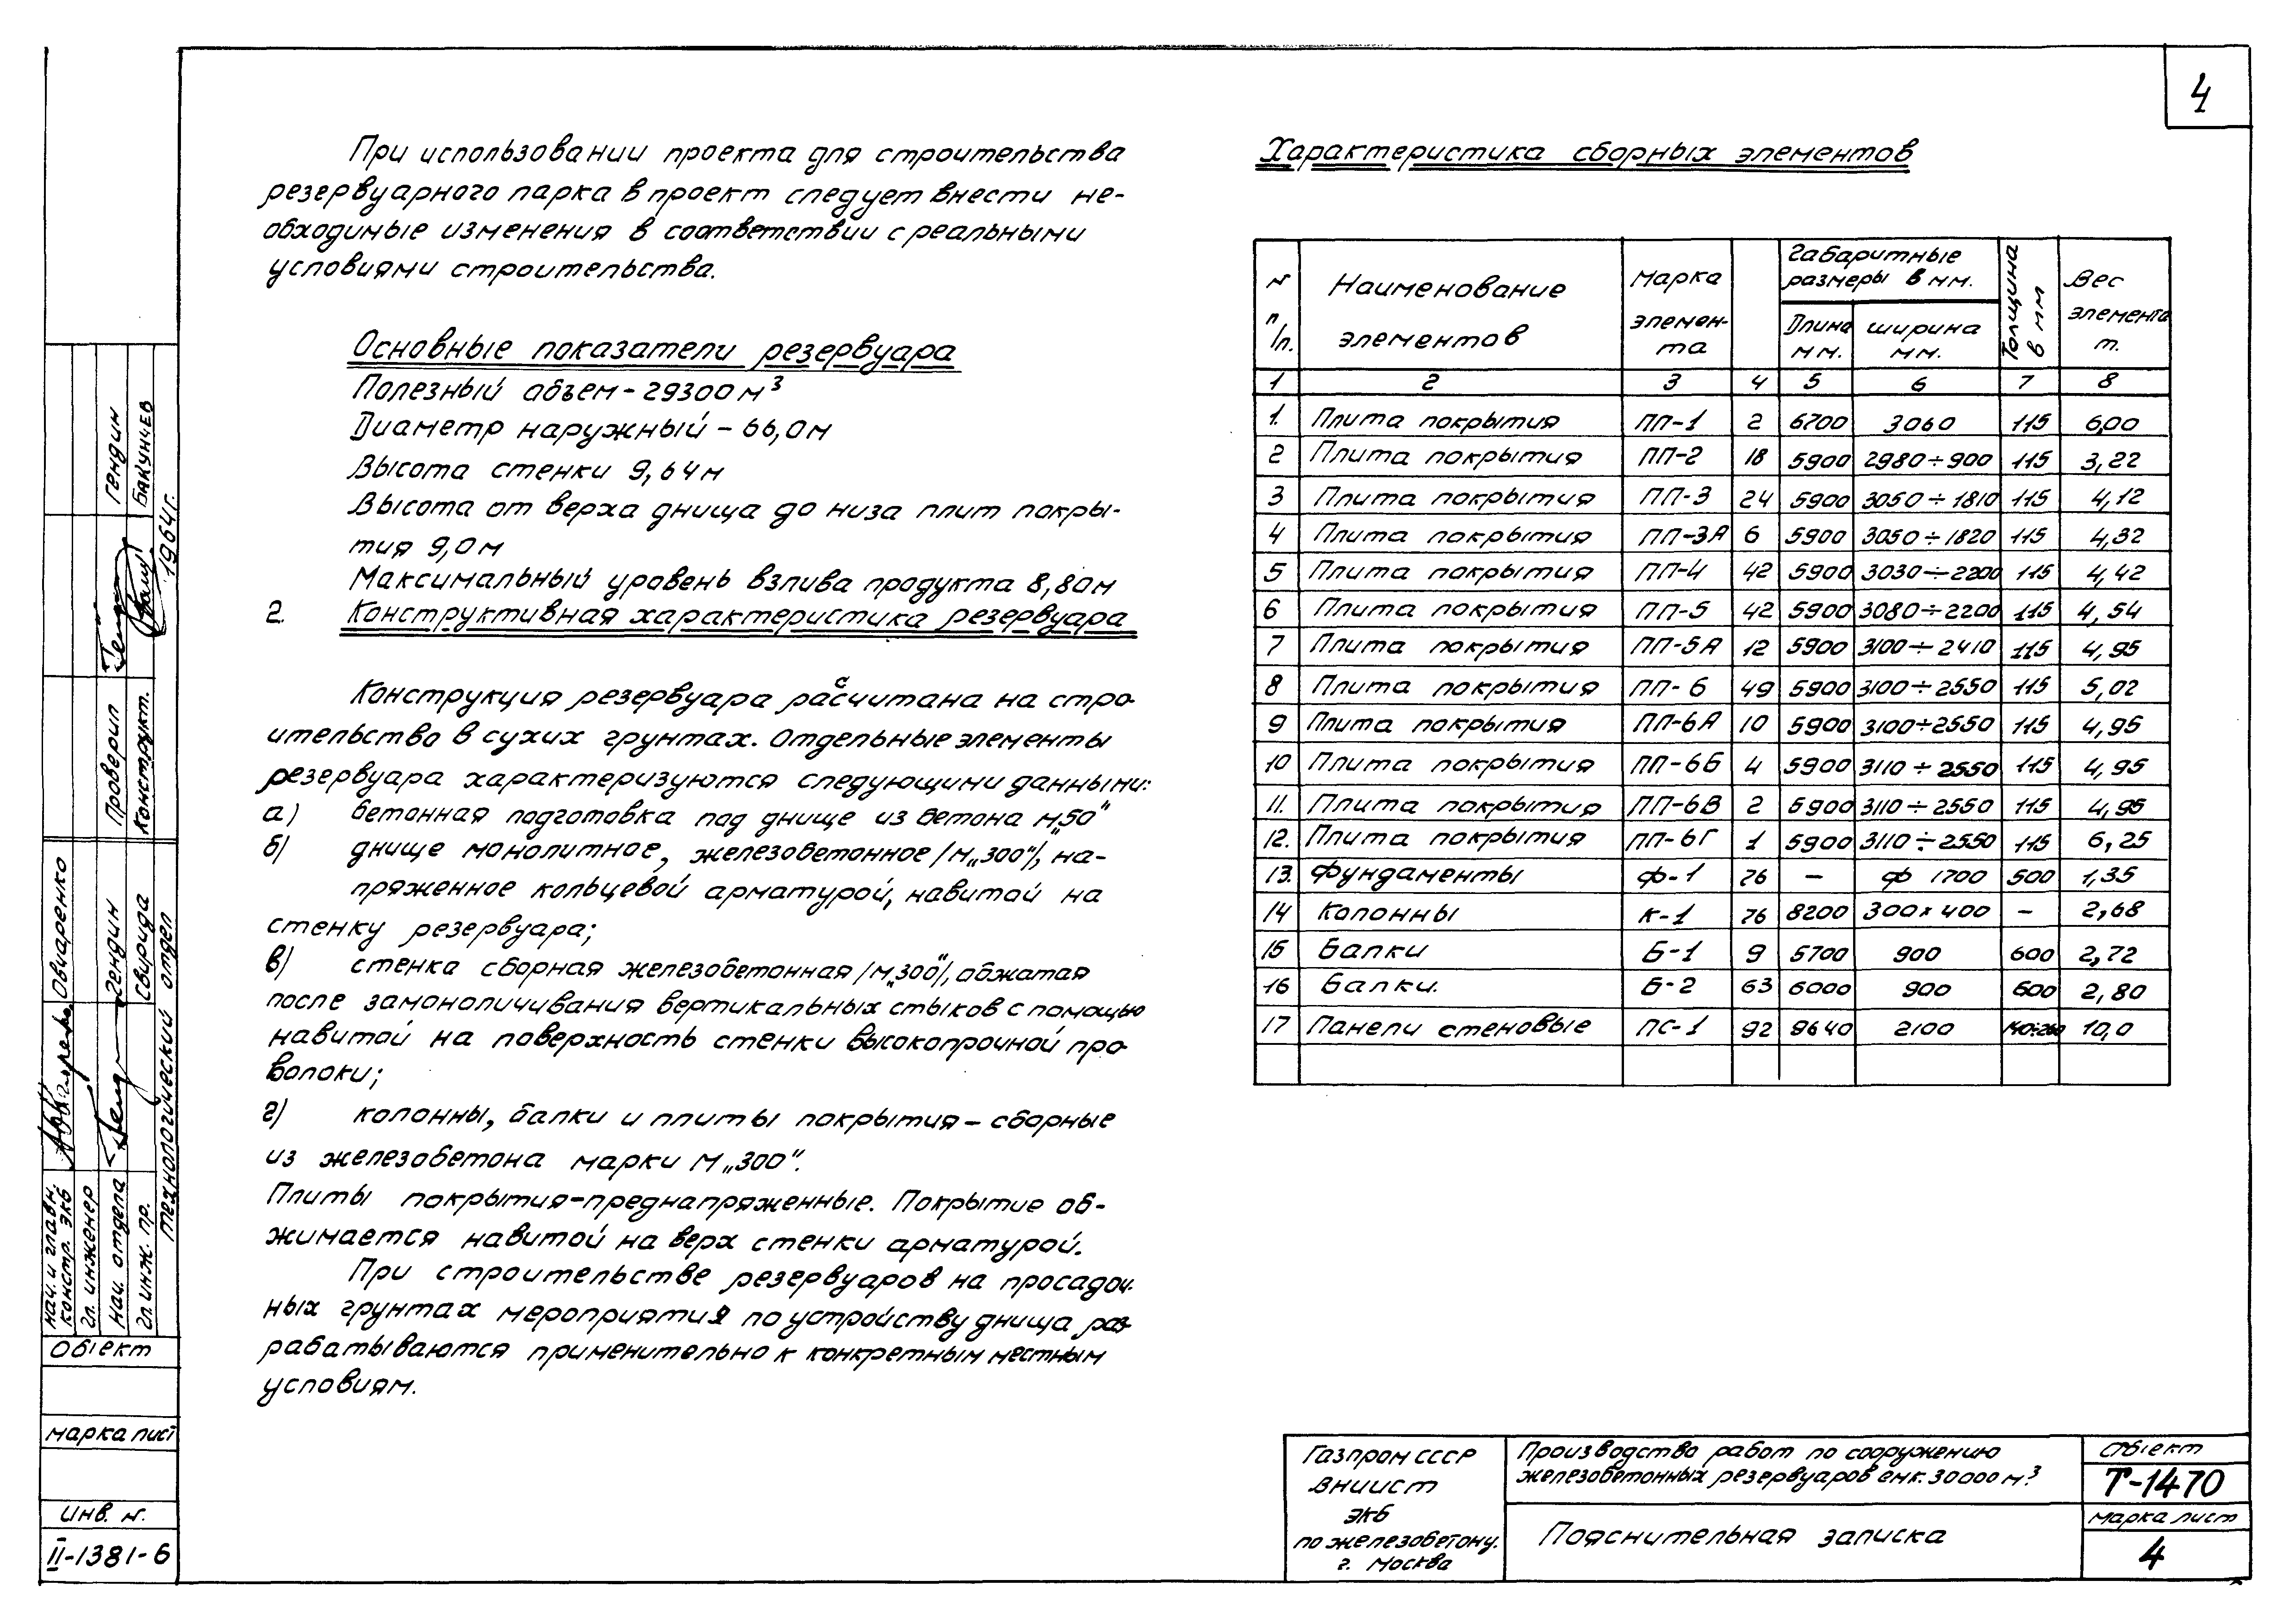 4
При использовании проекта для строительства
резервуарного парка в проект следует внести не-
обходимые изменения в соответствии с реальными
условиями строительства.
Основные показатели резервуара
Полезный объем - 29300 м³
Диаметр наружный - 66,0м
Высота стенки 9,64м
Высота от верха днища до низа плит покры-
тия 9,0м
Максимальный уровень взлива продукта 8,80м
2. Конструктивная характеристика резервуара
Конструкция резервуара рассчитана на стро-
ительство в сухих грунтах. Отдельные элементы
резервуара характеризуются следующими данными:
а) бетонная подготовка под днище из бетона М„50"
б) днище монолитное, железобетонное /М„300"/, на-
пряженное кольцевой арматурой, навитой на
стенку резервуара;
в) стенка сборная железобетонная /М„300"/, обжатая
после замоноличивания вертикальных стыков с помощью
навитой на поверхность стенки высокопрочной про-
волоки;
г) колонны, балки и плиты покрытия - сборные
из железобетона марки М„300".
Плиты покрытия-преднапряженные. Покрытие об-
жимается навитой на верх стенки арматурой.
При строительстве резервуаров на просадоч-
ных грунтах мероприятия по устройству днища раз-
рабатываются применительно к конкретным местным
условиям.
Характеристика сборных элементов
N п/п. Наименование элементов Марка элемен-та Габаритные размеры в мм. Длина мм. ширина мм. Толщина в мм Вес элемента т.
1 2 3 4 5 6 7 8
1. Плита покрытия ПП-1 2 6700 3060 115 6,00
2 Плита покрытия ПП-2 18 5900 2980÷900 115 3,22
3 Плита покрытия ПП-3 24 5900 3050÷1810 115 4,12
4 Плита покрытия ПП-3А 6 5900 3050÷1820 115 4,32
5 Плита покрытия ПП-4 42 5900 3030÷2200 115 4,42
6 Плита покрытия ПП-5 42 5900 3080÷2200 115 4,54
7 Плита покрытия ПП-5А 12 5900 3100÷2410 115 4,95
8 Плита покрытия ПП-6 49 5900 3100÷2550 115 5,02
9 Плита покрытия ПП-6А 10 5900 3100÷2550 115 4,95
10 Плита покрытия ПП-6Б 4 5900 3110÷2550 115 4,95
11. Плита покрытия ПП-6В 2 5900 3110÷2550 115 4,95
12. Плита покрытия ПП-6Г 1 5900 3110÷2550 115 6,25
13. Фундаменты Ф-1 76 — ф 1700 500 1,35
14 Колонны К-1 76 8200 300х400 - 2,68
15 Балки Б-1 9 5700 900 600 2,72
16 Балки. Б-2 63 6000 900 600 2,80
17 Панели стеновые ПС-1 92 9640 2100 10,0
Газпром СССР
ВНИИСТ
ЭКБ
по железобетону.
г. Москва
Производство работ по сооружению
железобетонных резервуаров емк. 30000 м³
Пояснительная записка
Объект
Т-1470
Марка лист
4
Гендин
Бакунчев
1964г.
Проверил
Конструкт.
Овчаренко
Гендин
Свирида
Технологический отдел
Нач. и главн.
констр. ЭКБ
Гл. инженер
Нач. отдела
Гл. инж. пр.
Объект
Марка лист
Инв. N.
II-1381-6